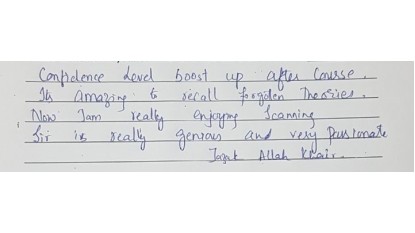 Confidence Level boost up after Course.
Its amazing to recall forgoten Theories.
Now Iam really enjoying Scanning
Sir is really genious and very Passionate
Jazak Allah Khair.